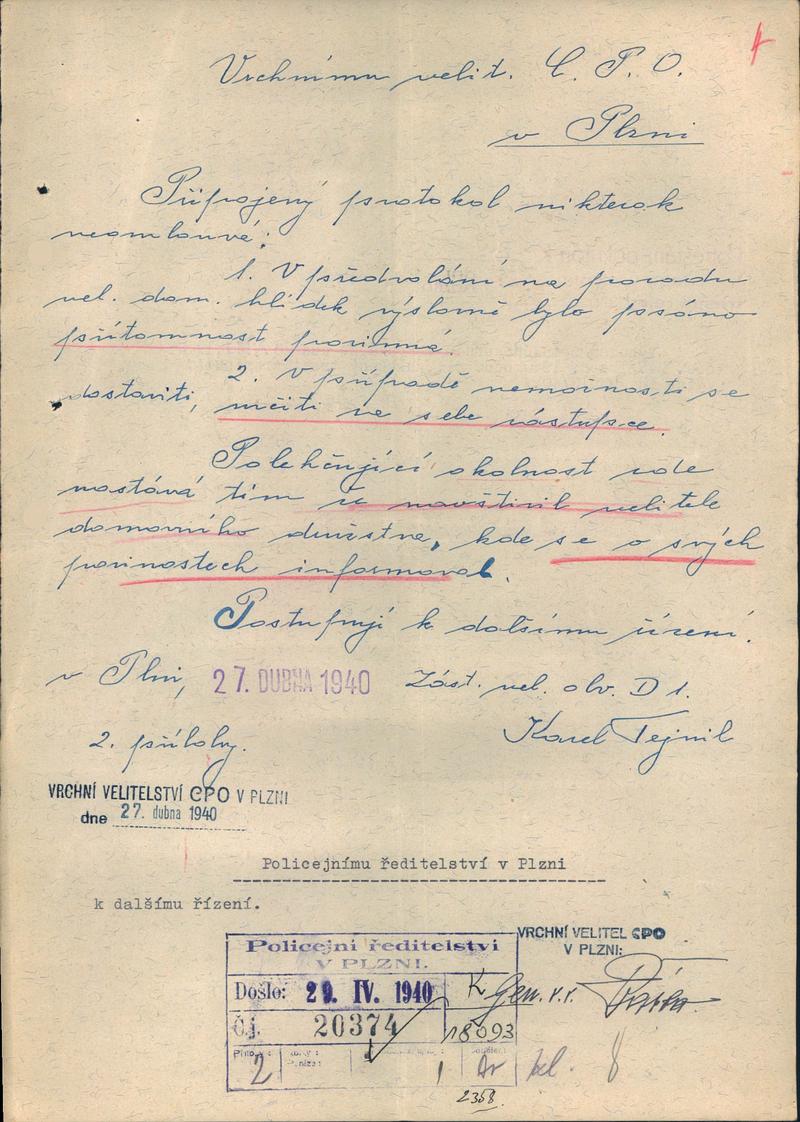 Vrchnímu velit. C. P. O.
v Plzni
Připojený protokol nikterak
neomlouvá:
1. V předvolání na poradu
vel. dom. hlídek výslovně bylo psáno
přítomnost povinná.
2. V případě nemožnosti se
dostaviti, určiti ze sebe zástupce.
Polehčující okolnost zde
nastává tím že navštívil velitele
domovního družstva, kde se o svých
povinostech informoval.
Postupuji k dalšímu řízení.
v Plzni, 27. DUBNA 1940 Zást. vel. obv. D 1.
2. přílohy. Karel Tejnil
VRCHNÍ VELITELSTVÍ CPO V PLZNI
dne 27. dubna 1940
Policejnímu ředitelství v Plzni
k dalšímu řízení.
VRCHNÍ VELITEL CPO
V PLZNI:
Gen. v.v.
Policejní ředitelství
V PLZNI.
Došlo: 29. IV. 1940 K
Č.j. 20374 18093
Příloh: 2
8
2358.